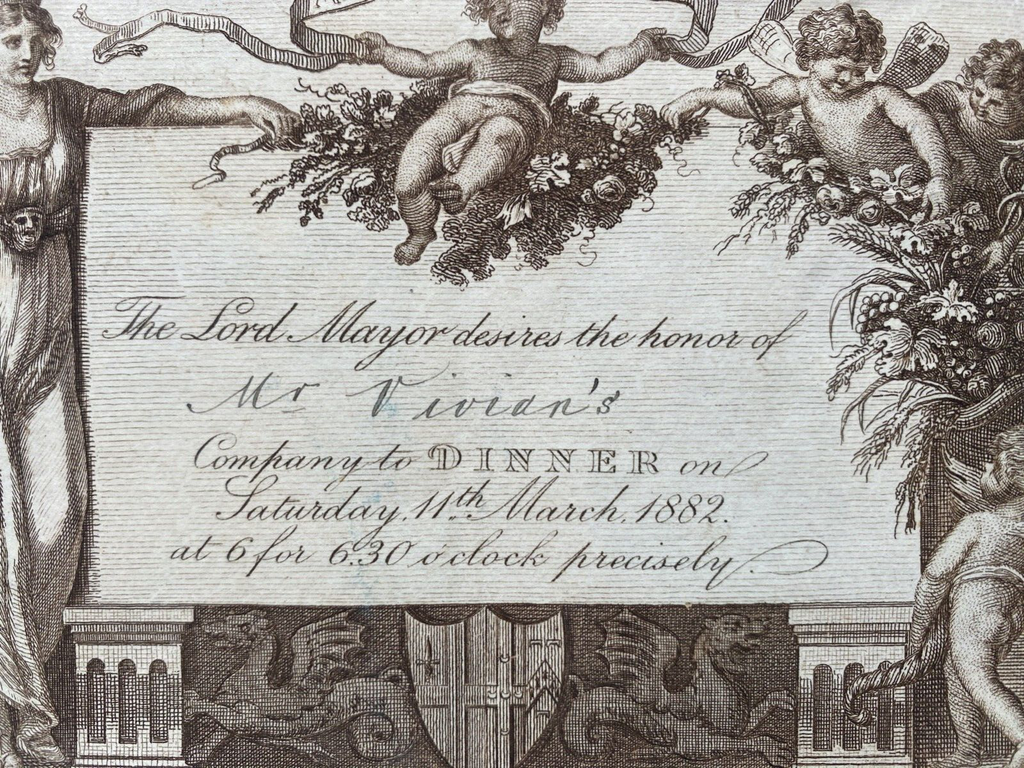 The Lord Mayor desires the honor of
Mr Vivian's
Company to DINNER on
Saturday, 11th March, 1882.
at 6 for 6.30 o'clock precisely.